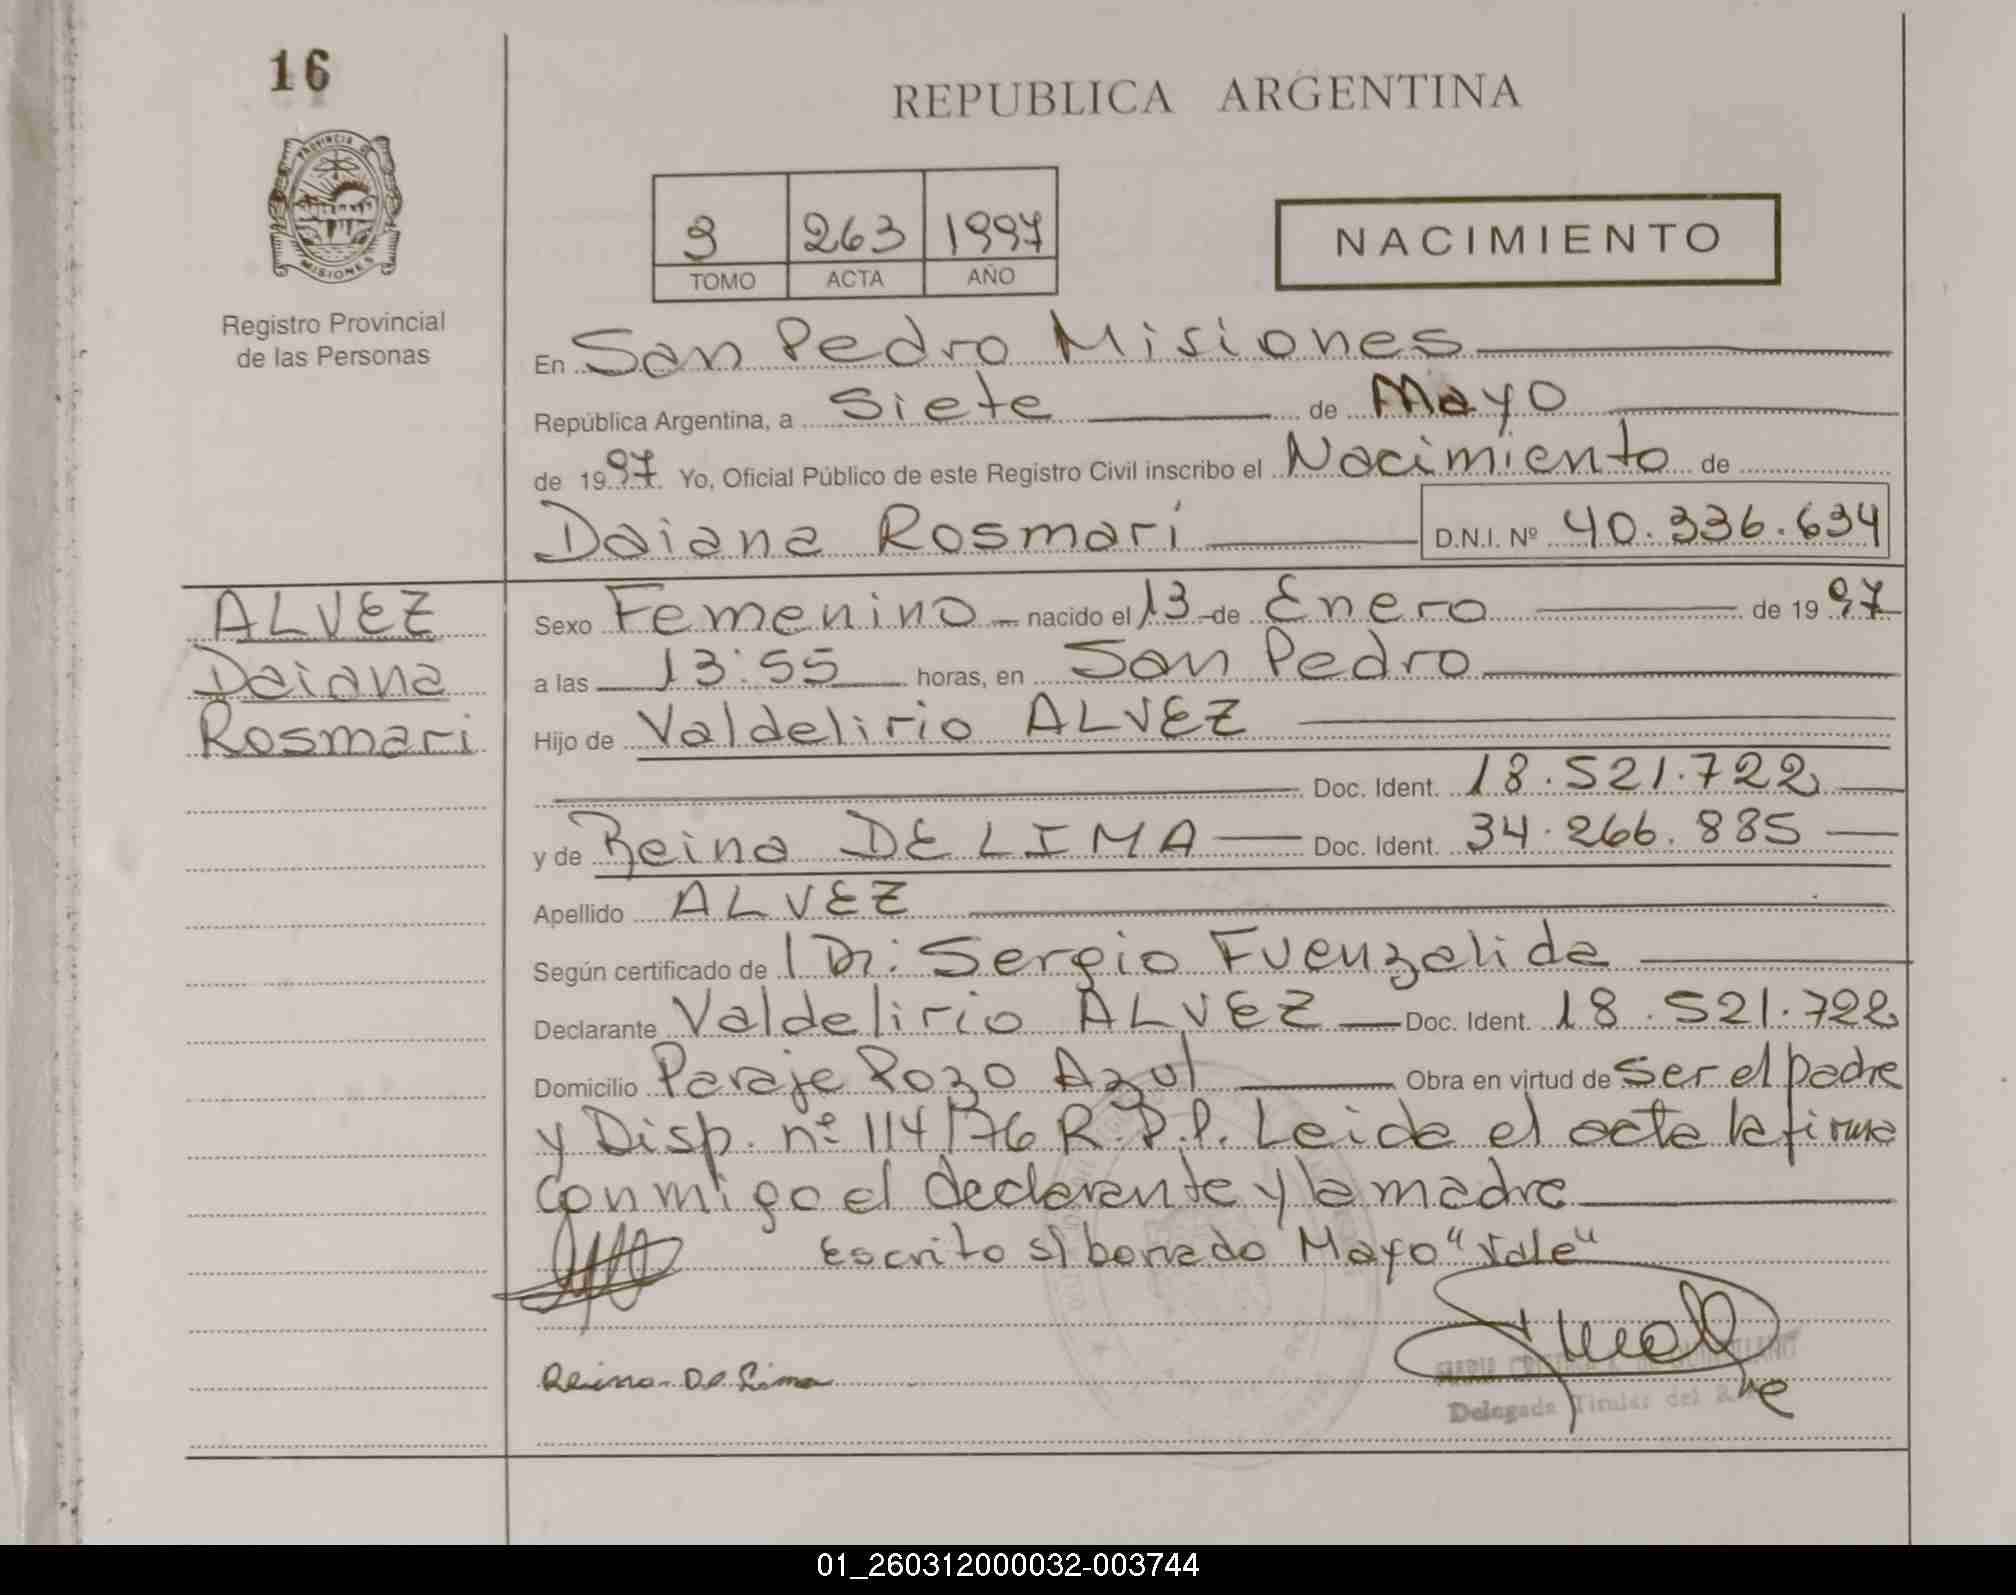 16
REPUBLICA ARGENTINA
PROVINCIA DE
MISIONES
Registro Provincial
de las Personas
3 263 1997
TOMO ACTA AÑO
NACIMIENTO
En San Pedro Misiones
República Argentina, a Siete de Mayo
de 1997 Yo, Oficial Público de este Registro Civil inscribo el Nacimiento de
Daiana Rosmari D.N.I. Nº 40.336.634
ALVEZ
Daiana
Rosmari
Sexo Femenino nacido el 13 de Enero de 1997
a las 13:55 horas, en San Pedro
Hijo de Valdelirio ALVEZ
Doc. Ident. 18.521.722
y de Reina DE LIMA Doc. Ident. 34.266.885
Apellido ALVEZ
Según certificado de Dr: Sergio Fuenzalida
Declarante Valdelirio ALVEZ Doc. Ident. 18.521.722
Domicilio Paraje Pozo Azul Obra en virtud de ser el padre
y Disp. nº 114/76 R.P.P. Leida el acta la firma
conmigo el declarante y la madre
Escrito s/ borrado Mayo "Vale"
Reina De Lima
Delegada Titular del
01_260312000032-003744